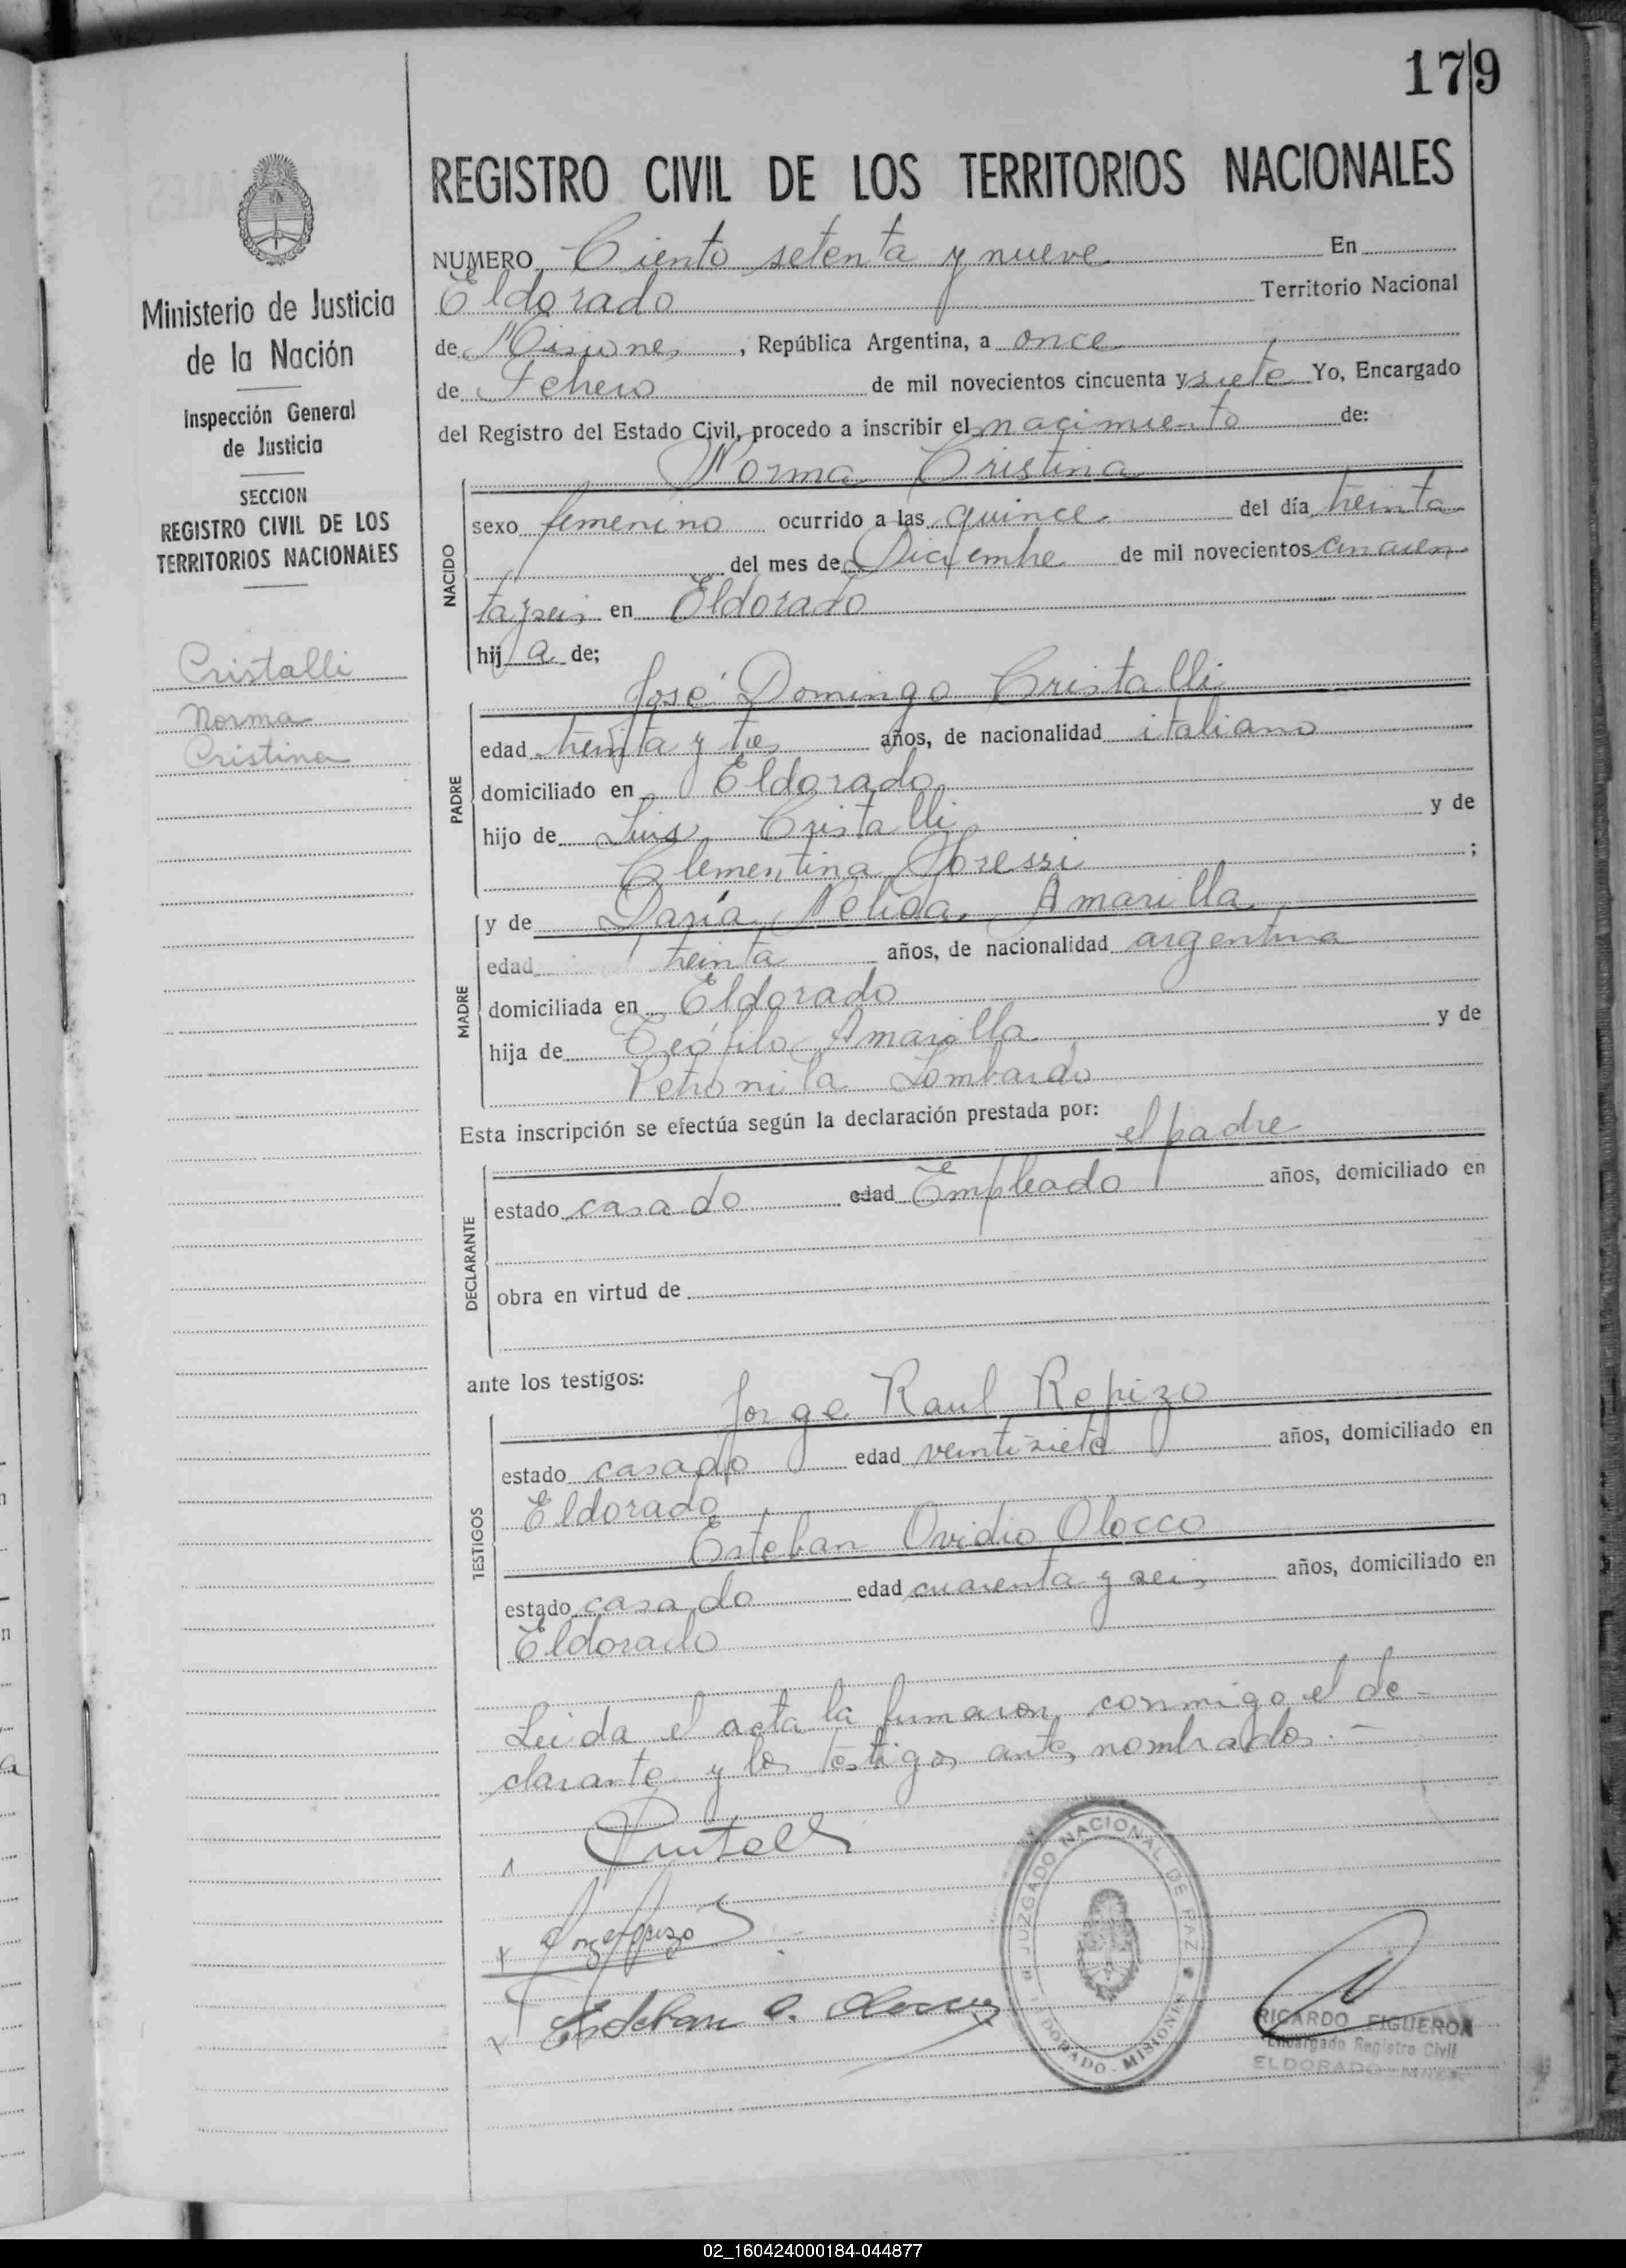 179
REGISTRO CIVIL DE LOS TERRITORIOS NACIONALES
Ministerio de Justicia
de la Nación
Inspección General
de Justicia
SECCION
REGISTRO CIVIL DE LOS
TERRITORIOS NACIONALES
Cristalli
Norma
Cristina
NUMERO Ciento setenta y nueve En
Eldorado Territorio Nacional
de Misiones, República Argentina, a once
de Febrero de mil novecientos cincuenta y siete Yo, Encargado
del Registro del Estado Civil, procedo a inscribir el nacimiento de:
Norma Cristina
NACIDO
sexo femenino ocurrido a las quince del día treinta
del mes de Diciembre de mil novecientos cincuen
ta y seis en Eldorado
hija de;
José Domingo Cristalli
PADRE
edad treinta y tres años, de nacionalidad italiano
domiciliado en Eldorado
hijo de Luis Cristalli y de
Clementina ;
MADRE
y de Daría Nélida Amarilla
edad treinta años, de nacionalidad argentina
domiciliada en Eldorado
hija de Teófilo Amarilla y de
Petronila Lombardo
Esta inscripción se efectúa según la declaración prestada por:
el padre
DECLARANTE
estado casado edad Empleado años, domiciliado en
obra en virtud de
ante los testigos:
Jorge Raul Repizo
TESTIGOS
estado casado edad veintisiete años, domiciliado en
Eldorado
Esteban Ovidio Olocco
estado casado edad cuarenta y seis años, domiciliado en
Eldorado
Leida el acta la firmaron conmigo el de-
clarante y los testigos antes nombrados.-
Esteban O. Olocco
JUZGADO NACIONAL DE PAZ
ELDORADO - MISIONES
RICARDO FIGUEROA
Encargado Registro Civil
ELDORADO - MNES
02_160424000184-044877